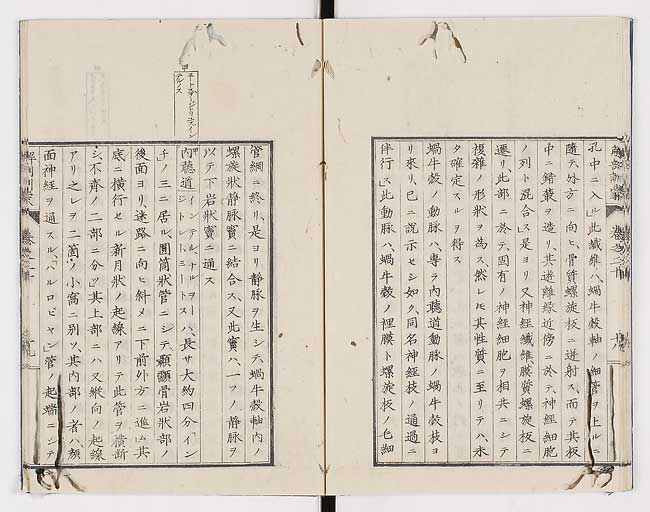 孔中ニ入ル此纖維ハ、蝸牛殻軸ノ細管ヲ上ルニ
隨テ、外方ニ向ヒ、骨質螺旋板ニ迸射ス、而テ其板
中ニ錯叢ヲ造リ、其遊離縁近傍ニ於テ、神經細胞
ノ列ト混合ス、是ヨリ又神經纖維、膜質螺旋板ニ
遷リ、此部ニ於テ、固有ノ神經細胞ヲ相共ニシテ
複雜ノ形狀ヲ為ス、然レモ其性質ニ至リテハ、未
タ確定スルヲ得ス
蝸牛殻ノ動脈ハ、專ラ內聽道動脈ノ蝸牛殻枝ヨ
リ來リ、已ニ說示セシ如ク、同名神經枝ノ通過ニ
伴行ス、此動脈ハ、蝸牛殻ノ裡膜ト螺旋板ノ色細
管網ニ終リ、是ヨリ靜脈ヲ生シテ、蝸牛殻軸內ノ
螺旋狀靜脈竇ニ結合ス、又此竇ハ、一ツノ靜脈ヲ
以テ下岩狀竇ニ通ス
內聽道
チノ三ニ居ル、圓筒狀管ニシテ、顳顬骨岩狀部ノ
後面ヨリ、迷路ニ向ヒ斜メニ下前外方ニ進ム、其
底ニ橫行セル新月狀ノ起線アリテ此管ヲ横断
シ、不齊ノ二部ニ分ツ、其上部ニハ又縱向ノ起線
アリ之レヲ二箇ノ小窩ニ別ツ、其內部ノ者ハ、顔
面神經ヲ通スル、ハルロピヤン管ノ起端ニシテ